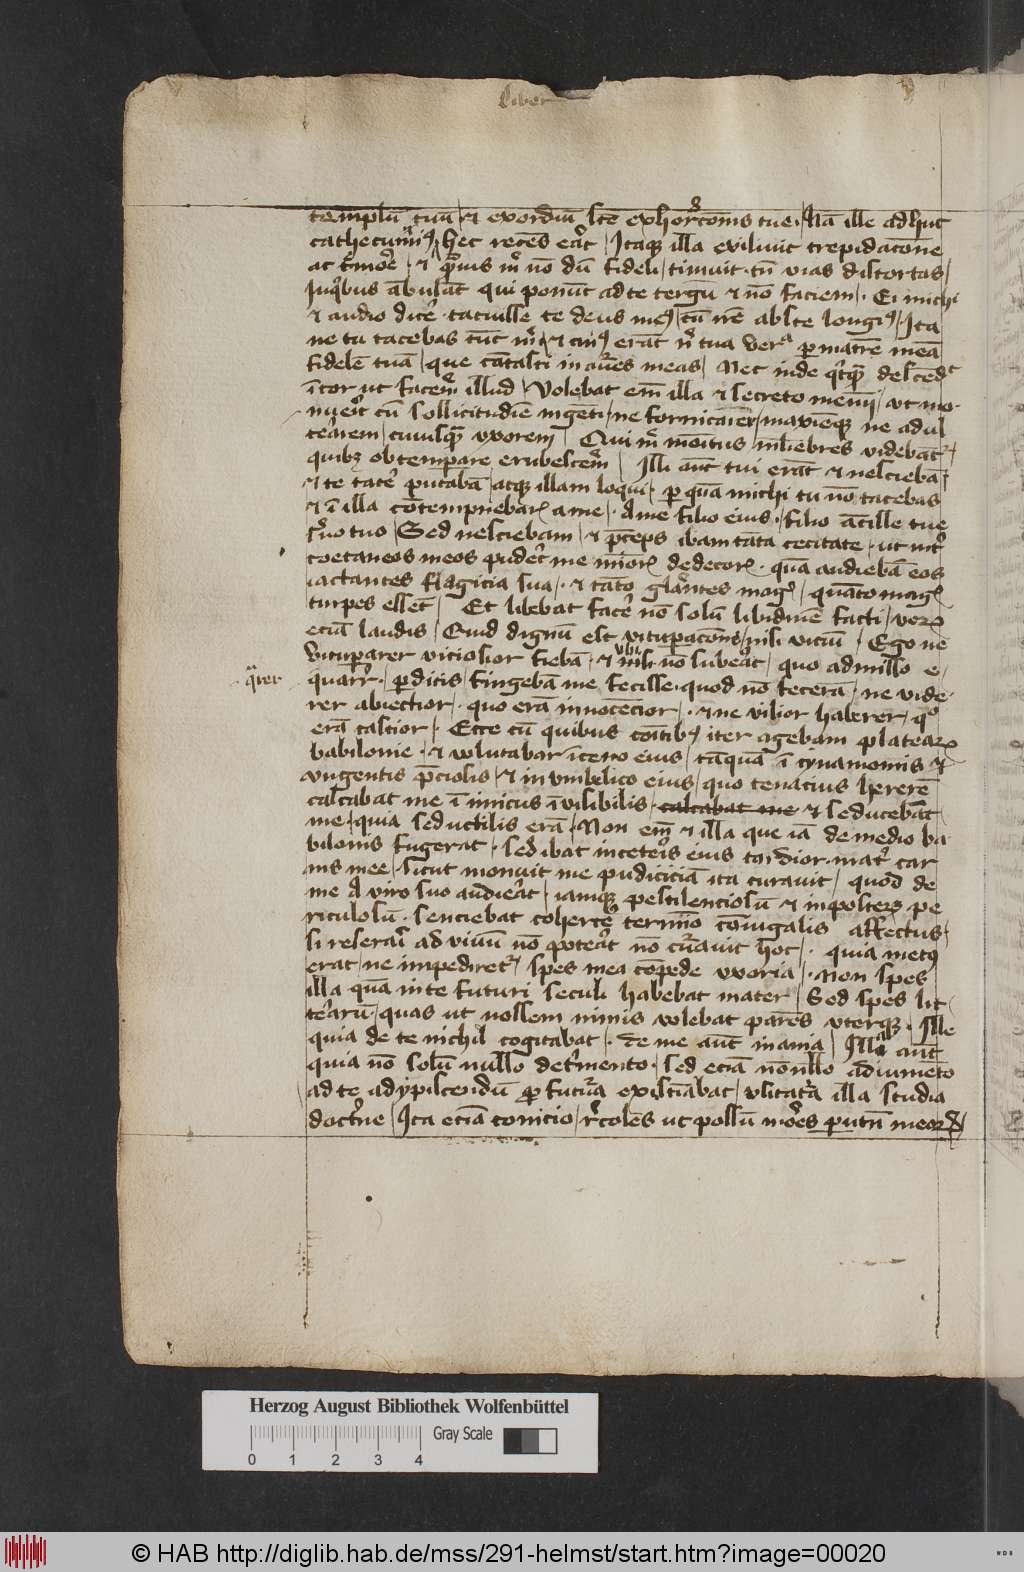 liber
templū tuū et exordiū scē exhortacionis tue Nā ille adhuc
cathecumin9 hec recēs erat Itaque illa exiliuit trepidacōne
ac tremore et quāuis mͥ nō dū fideli timuit tn̄ vias distortas
In quibus ābulāt qui ponūt ad te tergū et nō faciem Ei michi
et audio dicere tacuisse te deus me9 cū irē abs te longi9 Ita
ne tu tacebas tūc mͥ et cui9 erāt nisi tua verba per matrē meā
fidelē tuā que cātasti in aures meas Nec inde quicquā descēdit
ī cor ut facerem illud Volebat em̄ illa et secreto memī ut mo
nuerit cū sollicitudīe ingēti ne fornicarer maxīeque ne adul
terarem cuiusquā vxorem Qui mͥ monitus muliebres videbātur
quibus obtemperare erubescerem Illi aūt tui erāt et nesciebā
et te tacere putabā atque illam loqui per quā michi tu nō tacebas
et ī illa cōtempnebaris a me A me filio eius filio ācille tue
seruo tuo Sed nesciebam et preceps ibam tāta cecitate ut inter
coetaneos meos puderet me minoris dedecoris quā audiebā eos
iactantes flagicia sua et tāto gloriantes magis quāto magis
turpes essēt Et libebat facere nō solū libidine facti verum
eciā laudis Quid dignū est vituperacōne nisi viciū Ego ne
vituperarer viciosior fiebā et vbi nisi nō subeāt quo admisso e
quarer perditis fingebā me fecisse quod nō fecerā ne vide
rer abiectior quo erā innocēcior et ne vilior haberer quo
erā castior Ecce cū quibus comitib9 iter agebam platearum
babilonie et volutabar ī ceno eius tāquā ī cynamomis et
vngentis preciosis et in vmbelico eius quo tenacius hererē
calcabat me īimicus īuisibilis calcabat me et seducebat
me quia seductilis erā Non em̄ et illa que iā de medio ba
bilonis fugerat sed ibat in ceteris eius tardior mater car
nis mee sicut monuit me pudiciciā ita curauit quod de
me a viro suo audierat iamque pestilenciosū et in posterum pe
riculosū senciebat cohercere termīo cōiugalis affectus
si resecari ad viuū nō poterat nō curauit hoc quia met9
erat ne impediretur spes mea cōpede vxoria Non spes
illa quā in te futuri seculi habebat mater Sed spes lit
terarū quas ut nossem nimis volebat parēs vterque Ille
quia de te nichil cogitabat de me aūt inania Illa aūt
quia nō solū nullo detrimento sed eciā nōnullo adiumēto
ad te adypiscendū ꝓ futura existimabat vsitata illa studia
doctrine Ita eciā conicio recolēs ut possū mores parentū meorum
quarer
Herzog August Bibliothek Wolfenbüttel
0 1 2 3 4 Gray Scale
© HAB http://diglib.hab.de/mss/291-helmst/start.htm?image=00020